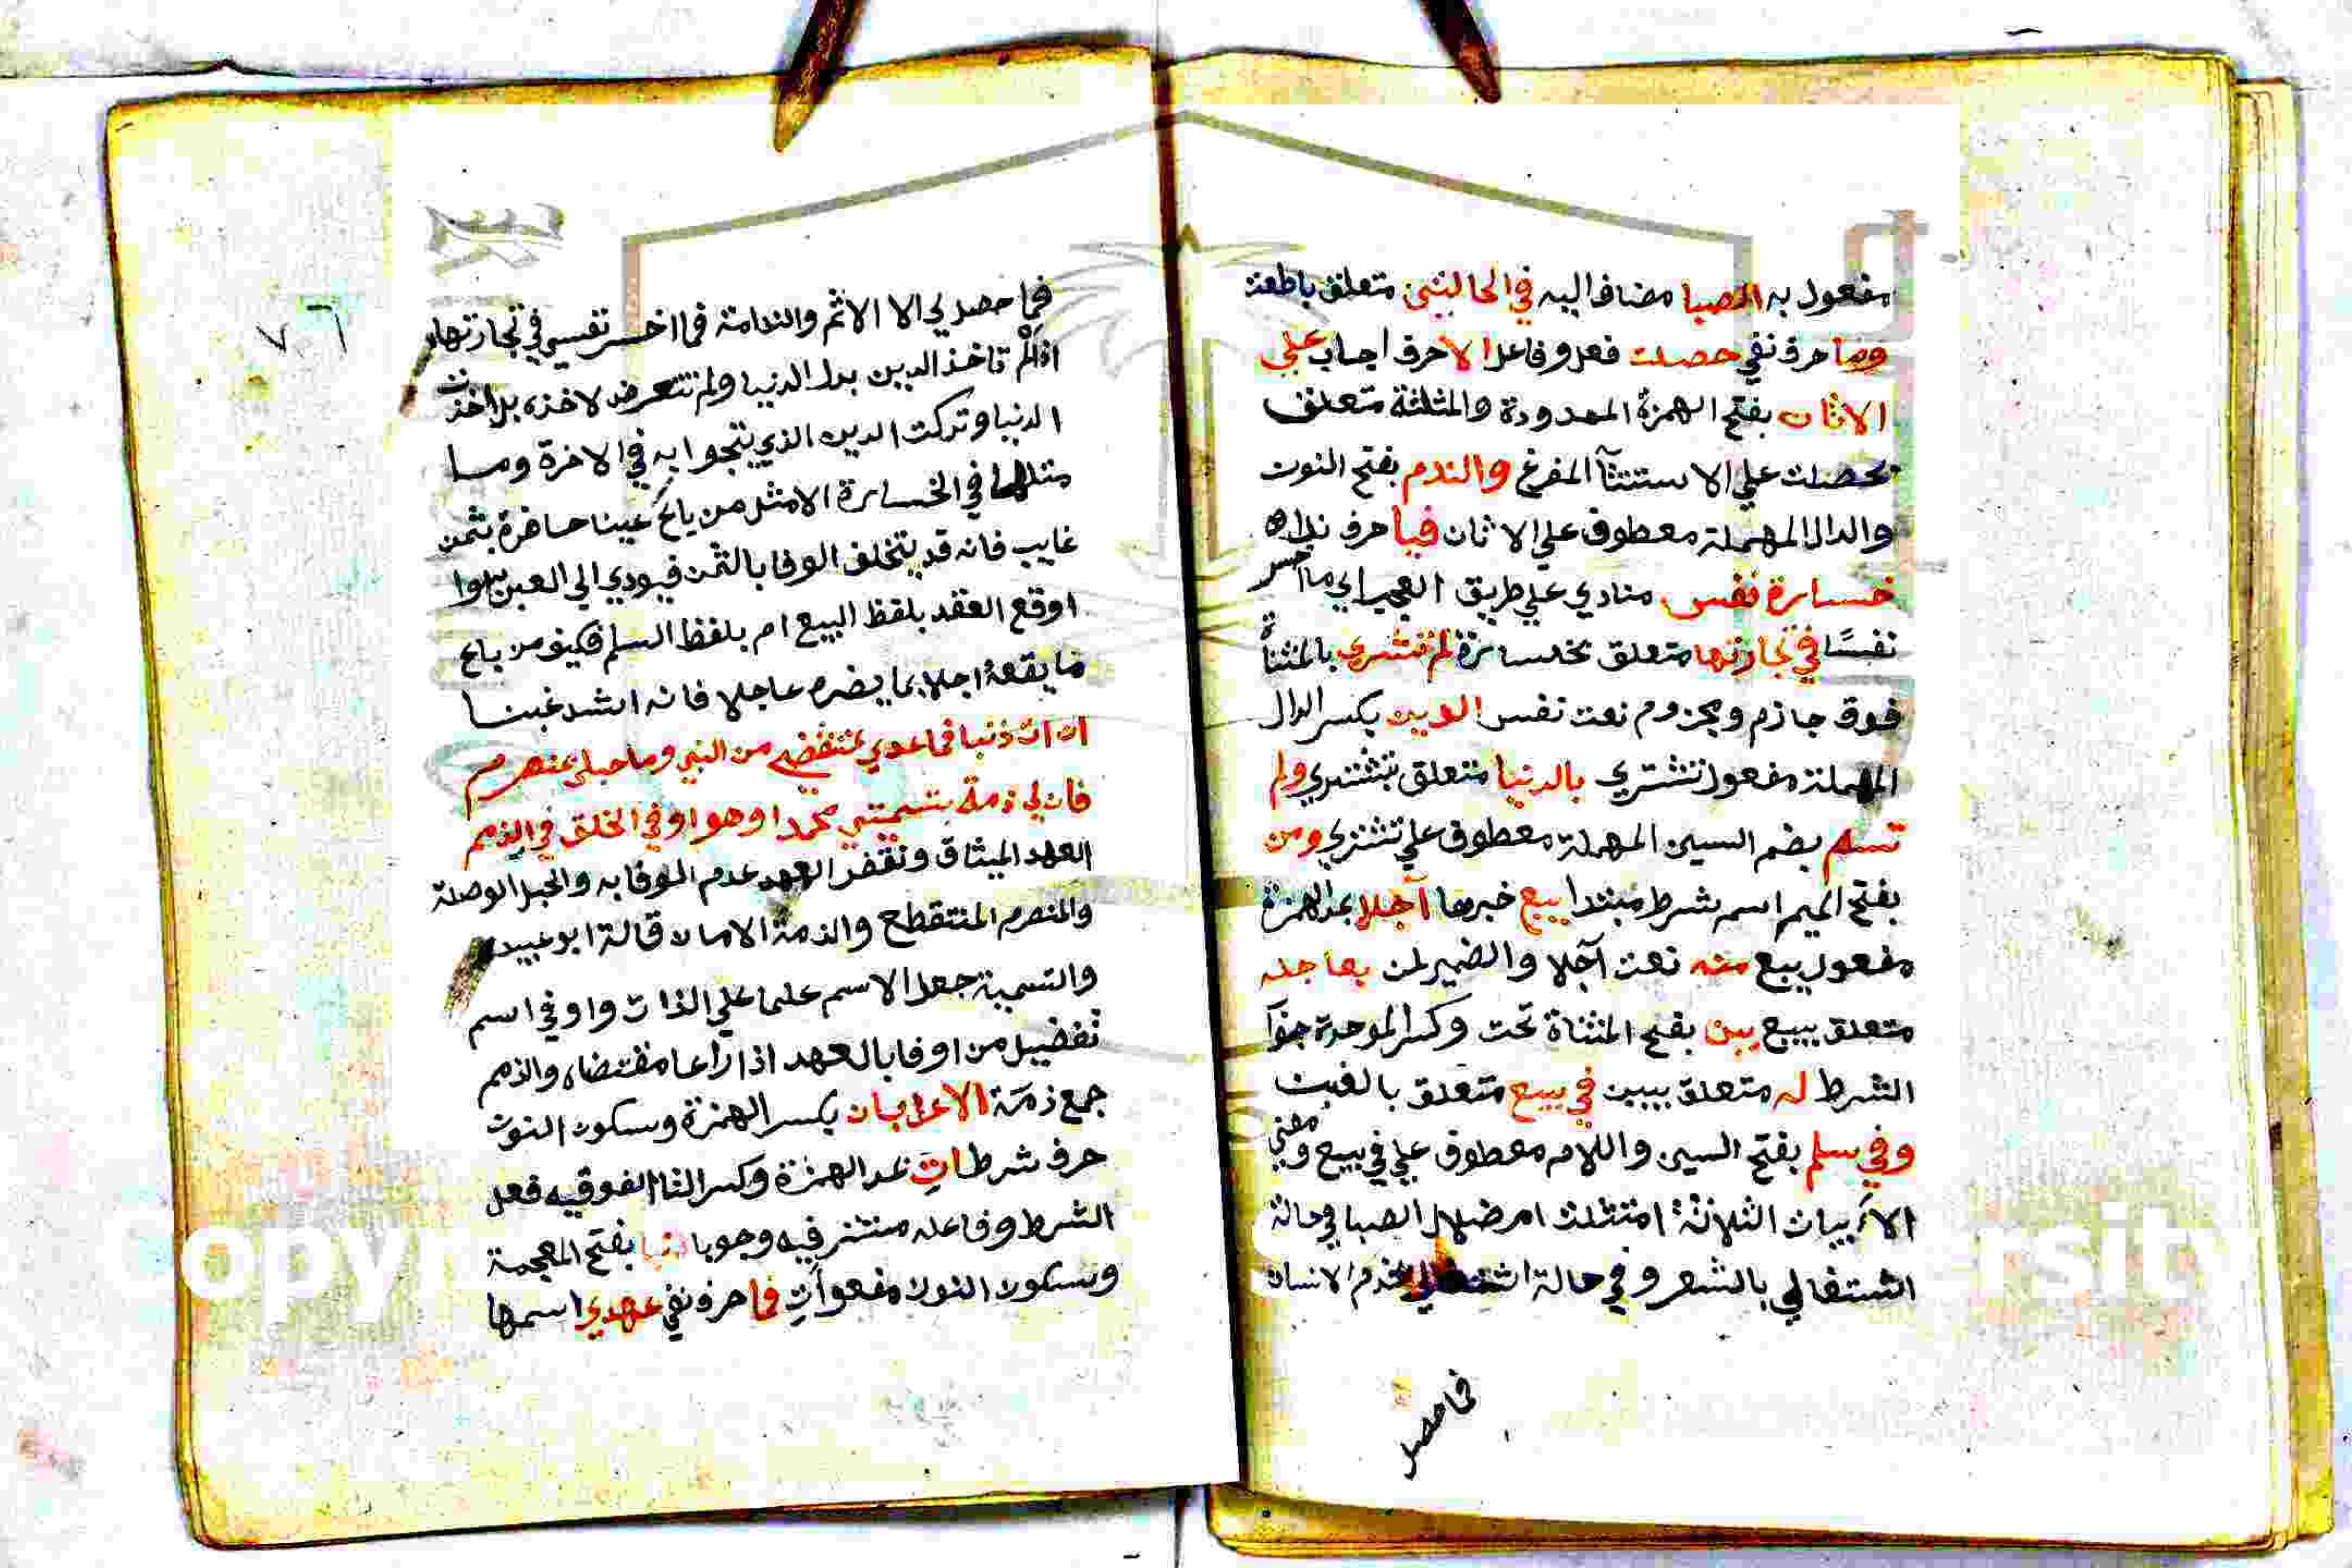 مفعول به الصبا مضاف اليه في الحالتين متعلق باطعت
وما حرف نفي حصلت فعل وفاعل الا حرف ايجاب علي
الاثام بفتح الهمزة الممدودة والمثلثة متعلق
بحصلت علي الاستثنآ المفرغ والندم بفتح النون
والدال المهملة معطوف علي الاثان فيا حرف نداء
خسارة نفس منادي علي طريق التعجب اي ما اخسر
نفسًا في تجارتها متعلق بخسارة لم تشتري بالمثناة
فوق جازم ومجزوم نعت نفس الدين بكسر الدال
المهملة مفعول تشتري بالدنيا متعلق بتشتري ولم
تسم بضم السين المهملة معطوف علي تشتري ومن
بفتح الميم اسم شرط مبتدا يبع خبرها آجلا بمد الهمزة
مفعول يبع منه نعت آجلا والضمير لمن بعاجله
متعلق بيبع يبن بفتح المثناة تحت وكسر الموحدة جوآ
الشرط له متعلق بيبن في بيع متعلق بالغبن
وفي سلم بفتح السين واللام معطوف علي في بيع ومعني
الابيات الثلاثة امتثلت امر ضلال الصبا في حالة
اشتغالي بالشعر وفي حالة اشتغالي بخدم الانسان
فما حصل
٧٦
فما حصل لي الا الاثم والندامة فما اخسر نفسي في تجارتها
اذ لم تاخذ الدين بدل الدنيا ولم تتعرض لاخذه بل اخذت
الدنيا وتركت الدين الذي ينجوا به في الاخرة وما
مثلها في الخسارة الا مثل من باع عينا حاضرة بثمن
غايب فانه قد يتخلف الوفا بالثمن فيودي الي الغبن سوا
اوقع العقد بلفظ البيع ام بلفظ السلم فكيف من باع
ما يقعه اجلا بما يضره عاجلا فانه اشد غبنا
ان ات ذنبا فما عهدي بمنتقض من النبي وما حبلي بمنصرم
فان لي ذمة بتسميتي محمدا وهو اوفي الخلق في الذمم
العهد الميثاق ونقض العهد عدم الوفا به والحبل الوصلة
والمنصرم المنتقطع والذمة الامان قالة ابو عبيد
والتسمية جعل الاسم علما علي الذات واوفي اسم
تفضيل من اوفا بالعهد اذا راعا مقتضاه والذمم
جمع ذمة الاعراب ان بكسر الهمزة وسكون النون
حرف شرط ات بمد الهمزة وكسر التا الفوقيه فعل
الشرط وفاعله مستتر فيه وجوبا ذنبا بفتح المعجمة
وسكون النون مفعول ات فما حرف نفي عهدي اسمها